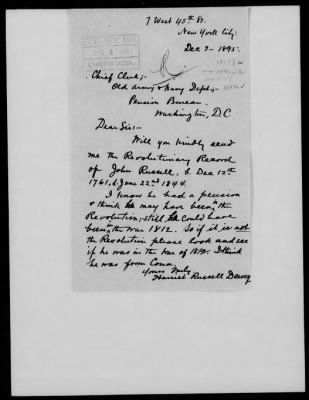 7 West 45th St.
New York City.
Dec 3 - 1895.
Chief Clerk;-
Old Army & Navy Dept;-
Pension Bureau.
Washington, D.C
Dear Sir:-
Will you kindly send
me the Revolutionary Record
of John Russell, b. Dec 12th
1761, d. June 22nd 1844.
I know he had a pension
& think he may have been in the
Revolution, still he could have
been in the War 1812. So if it is not
the Revolution please look and see
if he was in the War of 1812. I think
he was from Conn.
Yours truly
Harriet Russell Dewey